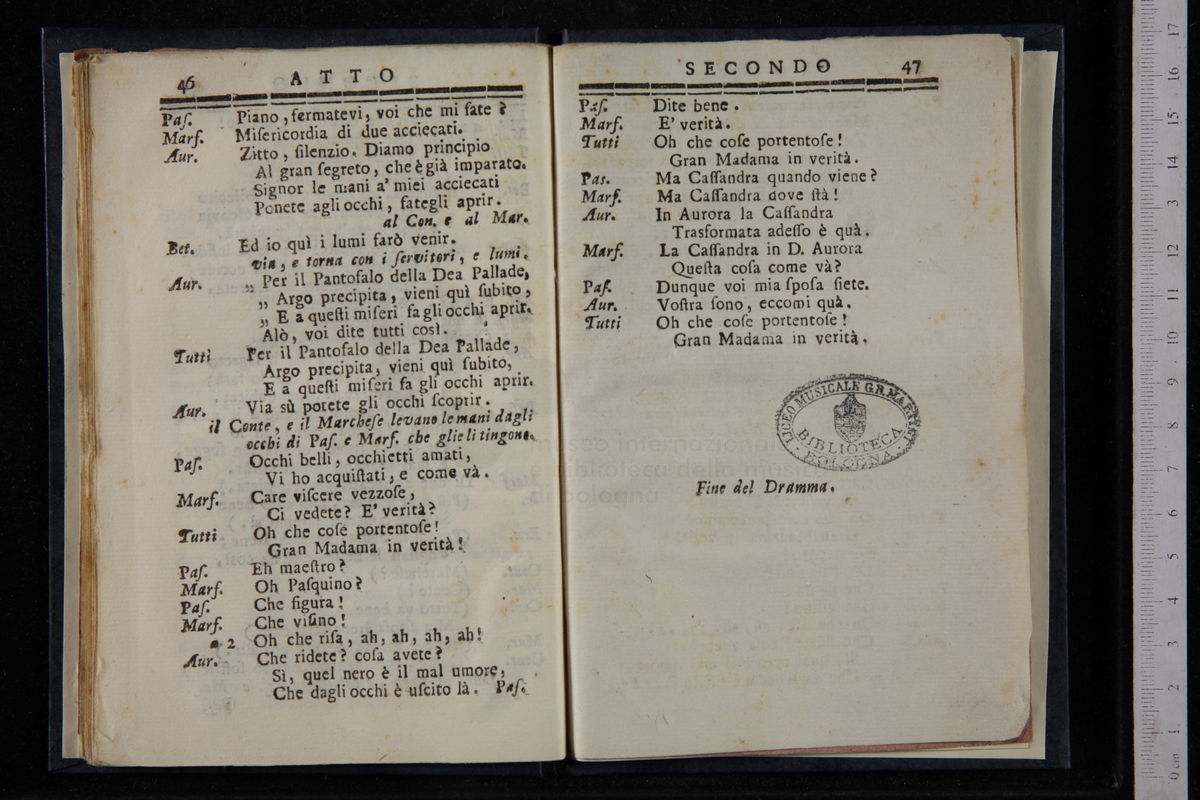 46 ATTO
Paſ. Piano, fermatevi, voi che mi fate?
Marſ. Miſericordia di due acciecati.
Aur. Zitto, ſilenzio. Diamo principio
Al gran ſegreto, che è già imparato.
Signor le mani a' miei acciecati
Ponete agli occhi, fategli aprir.
al Con. e al Mar.
Bet. Ed io quì i lumi farò venir.
via, e torna con i ſervitori, e lumi.
Aur. „ Per il Pantofalo della Dea Pallade,
„ Argo precipita, vieni quì ſubito,
„ E a queſti miſeri fa gli occhi aprir.
Alò, voi dite tutti così.
Tutti Per il Pantofalo della Dea Pallade,
Argo precipita, vieni quì ſubito,
E a queſti miſeri fa gli occhi aprir.
Aur. Via sù potete gli occhi ſcoprir.
il Conte, e il Marcheſe levano le mani dagli
occhi di Paſ. e Marf. che glie li tingono.
Paſ. Occhi belli, occhietti amati,
Vi ho acquiſtati, e come và.
Marf. Care viſcere vezzoſe,
Ci vedete? E' verità?
Tutti Oh che coſe portentoſe!
Gran Madama in verità!
Paſ. Eh maeſtro?
Marf. Oh Paſquino?
Paſ. Che figura!
Marf. Che viſino!
a 2 Oh che riſa, ah, ah, ah, ah!
Aur. Che ridete? coſa avete?
Sì, quel nero è il mal umore,
Che dagli occhi è uſcito là. Paſ.
SECONDO 47
Paſ. Dite bene.
Marf. E' verità.
Tutti Oh che coſe portentoſe!
Gran Madama in verità.
Pas. Ma Caſſandra quando viene?
Marf. Ma Caſſandra dove ſtà!
Aur. In Aurora la Caſſandra
Trasformata adeſſo è quà.
Marf. La Caſſandra in D. Aurora
Queſta coſa come và?
Paſ. Dunque voi mia ſpoſa ſiete.
Aur. Voſtra ſono, eccomi quà.
Tutti Oh che coſe portentoſe!
Gran Madama in verità.
LICEO MUSICALE G.B. MARTINI
BIBLIOTECA
BOLOGNA
museo internazionale
e biblioteca della musica
di bologna
Fine del Dramma.
0 cm 1 2 3 4 5 6 7 8 9 10 11 12 13 14 15 16 17